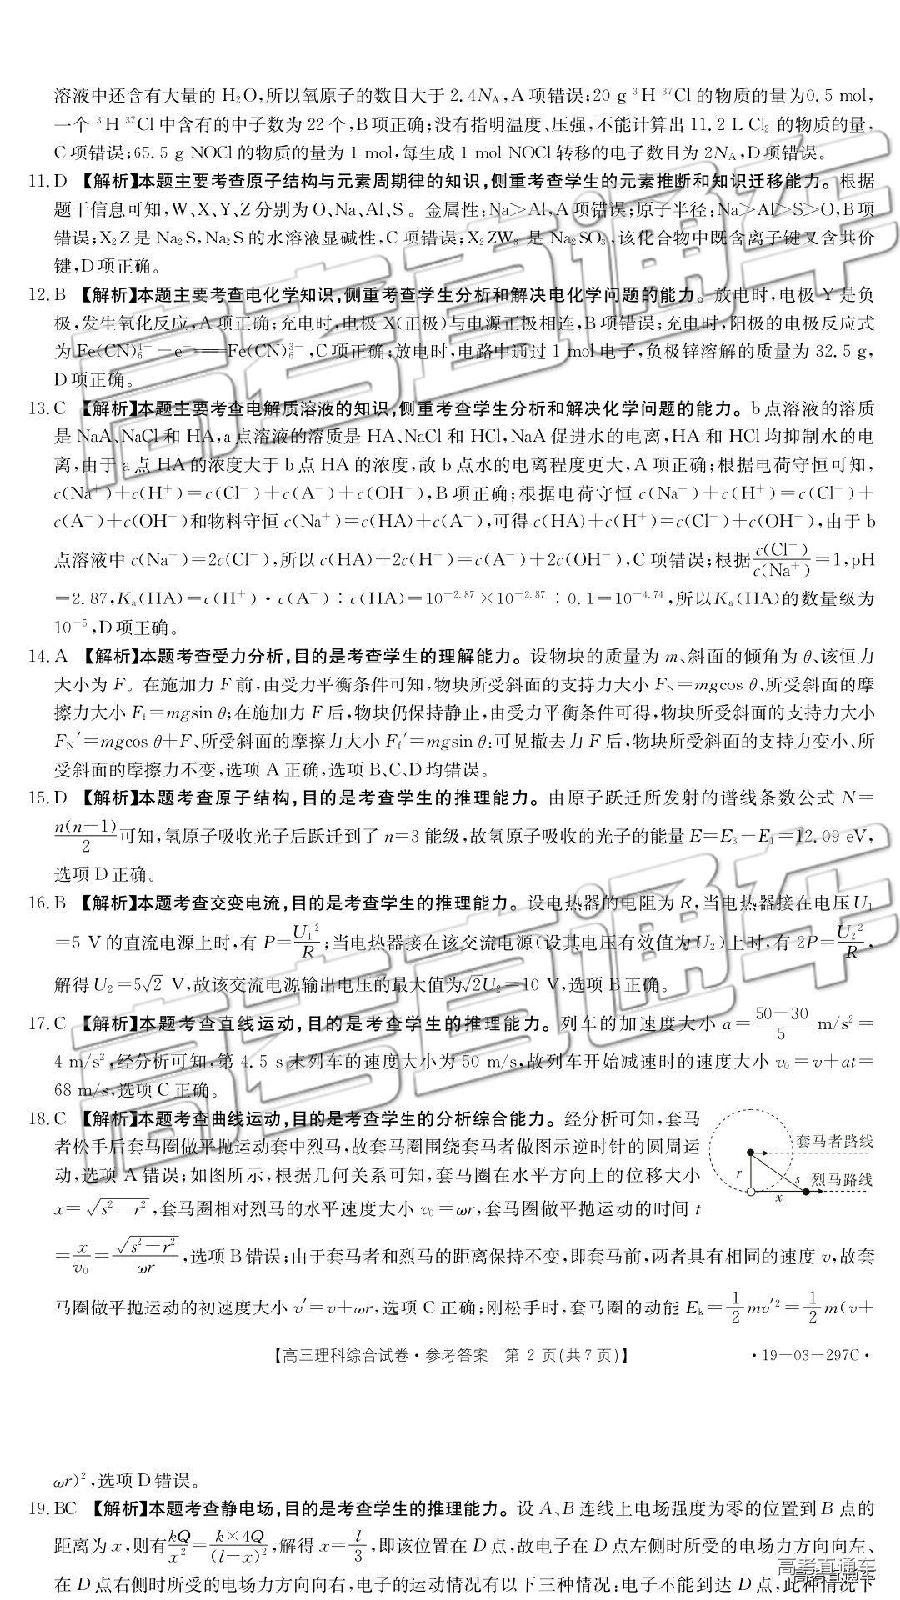 溶液中还含有大量的 H₂O,所以氧原子的数目大于 2.4Nₐ,A 项错误;20 g ³H ³⁷Cl 的物质的量为0.5 mol,
一个 ³H ³⁷Cl 中含有的中子数为 22 个,B项正确;没有指明温度、压强,不能计算出 11.2 L Cl₂ 的物质的量,
C 项错误;65.5 g NOCl 的物质的量为 1 mol,每生成 1 mol NOCl 转移的电子数目为 2Nₐ,D 项错误。
11. D 【解析】本题主要考查原子结构与元素周期律的知识,侧重考查学生的元素推断和知识迁移能力。根据
题干信息可知,W、X、Y、Z 分别为 O、Na、Al、S。金属性:Na>Al,A 项错误;原子半径:Na>Al>S>O,B 项
错误;X₂Z 是 Na₂S,Na₂S 的水溶液显碱性,C 项错误;X₂ZW₃ 是 Na₂SO₃,该化合物中既含离子键又含共价
键,D 项正确。
12. B 【解析】本题主要考查电化学知识,侧重考查学生分析和解决电化学问题的能力。放电时,电极 Y 是负
极,发生氧化反应,A 项正确;充电时,电极 X(正极)与电源正极相连,B 项错误;充电时,阳极的电极反应式
为 Fe(CN)₆⁴⁻−e⁻══Fe(CN)₆³⁻,C 项正确;放电时,电路中通过 1 mol 电子,负极锌溶解的质量为 32.5 g,
D 项正确。
13. C 【解析】本题主要考查电解质溶液的知识,侧重考查学生分析和解决化学问题的能力。b 点溶液的溶质
是 NaA、NaCl 和 HA,a 点溶液的溶质是 HA、NaCl 和 HCl,NaA 促进水的电离,HA 和 HCl 均抑制水的电
离,由于 a 点 HA 的浓度大于 b 点 HA 的浓度,故 b 点水的电离程度更大,A 项正确;根据电荷守恒可知,
c(Na⁺)+c(H⁺)=c(Cl⁻)+c(A⁻)+c(OH⁻),B 项正确;根据电荷守恒 c(Na⁺)+c(H⁺)=c(Cl⁻)+
c(A⁻)+c(OH⁻)和物料守恒 c(Na⁺)=c(HA)+c(A⁻),可得 c(HA)+c(H⁺)=c(Cl⁻)+c(OH⁻),由于 b
点溶液中 c(Na⁺)=2c(Cl⁻),所以 c(HA)+2c(H⁺)=c(A⁻)+2c(OH⁻),C 项错误;根据 c(Cl⁻)/c(Na⁺)=1,pH
=2.87,Kₐ(HA)=c(H⁺)·c(A⁻)∶c(HA)=10⁻²·⁸⁷×10⁻²·⁸⁷∶0.1=10⁻⁴·⁷⁴,所以Kₐ(HA)的数量级为
10⁻⁵,D 项正确。
14. A 【解析】本题考查受力分析,目的是考查学生的理解能力。设物块的质量为 m、斜面的倾角为 θ、该恒力
大小为 F。在施加力 F 前,由受力平衡条件可知,物块所受斜面的支持力大小 F_N=mgcos θ、所受斜面的摩
擦力大小 F_f=mgsin θ;在施加力 F 后,物块仍保持静止,由受力平衡条件可得,物块所受斜面的支持力大小
F_N′=mgcos θ+F、所受斜面的摩擦力大小 F_f′=mgsin θ;可见撤去力 F 后,物块所受斜面的支持力变小、所
受斜面的摩擦力不变,选项 A 正确,选项 B、C、D 均错误。
15. D 【解析】本题考查原子结构,目的是考查学生的推理能力。由原子跃迁所发射的谱线条数公式 N=
n(n−1)/2 可知,氢原子吸收光子后跃迁到了 n=3 能级,故氢原子吸收的光子的能量 E=E₃−E₁=12.09 eV,
选项 D 正确。
16. B 【解析】本题考查交变电流,目的是考查学生的推理能力。设电热器的电阻为 R,当电热器接在电压U₁
=5 V 的直流电源上时,有 P=U₁²/R;当电热器接在该交流电源(设其电压有效值为 U₂)上时,有 2P=U₂²/R,
解得 U₂=5√2 V,故该交流电源输出电压的最大值为√2U₂=10 V,选项 B 正确。
17. C 【解析】本题考查直线运动,目的是考查学生的推理能力。列车的加速度大小 a=(50−30)/5 m/s²=
4 m/s²,经分析可知,第 4.5 s 末列车的速度大小为 50 m/s,故列车开始减速时的速度大小 v₀=v+at=
68 m/s,选项 C 正确。
18. C 【解析】本题考查曲线运动,目的是考查学生的分析综合能力。经分析可知,套马
者松手后套马圈做平抛运动套中烈马,故套马圈围绕套马者做图示逆时针的圆周运
动,选项 A 错误;如图所示,根据几何关系可知,套马圈在水平方向上的位移大小
x=√(s²−r²),套马圈相对烈马的水平速度大小 v₀=ωr,套马圈做平抛运动的时间 t
=x/v₀=√(s²−r²)/ωr,选项 B 错误;由于套马者和烈马的距离保持不变,即套马前,两者具有相同的速度 v,故套
马圈做平抛运动的初速度大小 v′=v+ωr,选项 C 正确;刚松手时,套马圈的动能 Eₖ=1/2 mv′²=1/2 m(v+
套马者路线
r
s
烈马路线
x
【高三理科综合试卷·参考答案 第 2 页(共 7 页)】
·19−03−297C·
ωr)²,选项 D 错误。
19. BC 【解析】本题考查静电场,目的是考查学生的推理能力。设 A、B 连线上电场强度为零的位置到 B 点的
距离为 x,则有 kQ/x²=k×4Q/(l−x)²,解得 x=l/3,即该位置在 D 点,故电子在 D 点左侧时所受的电场力方向向左、
在 D 点右侧时所受的电场力方向向右,电子的运动情况有以下三种情况:电子不能到达 D 点,此种情况下
高考直通车
高考直通车
高考直通车
高考直通车